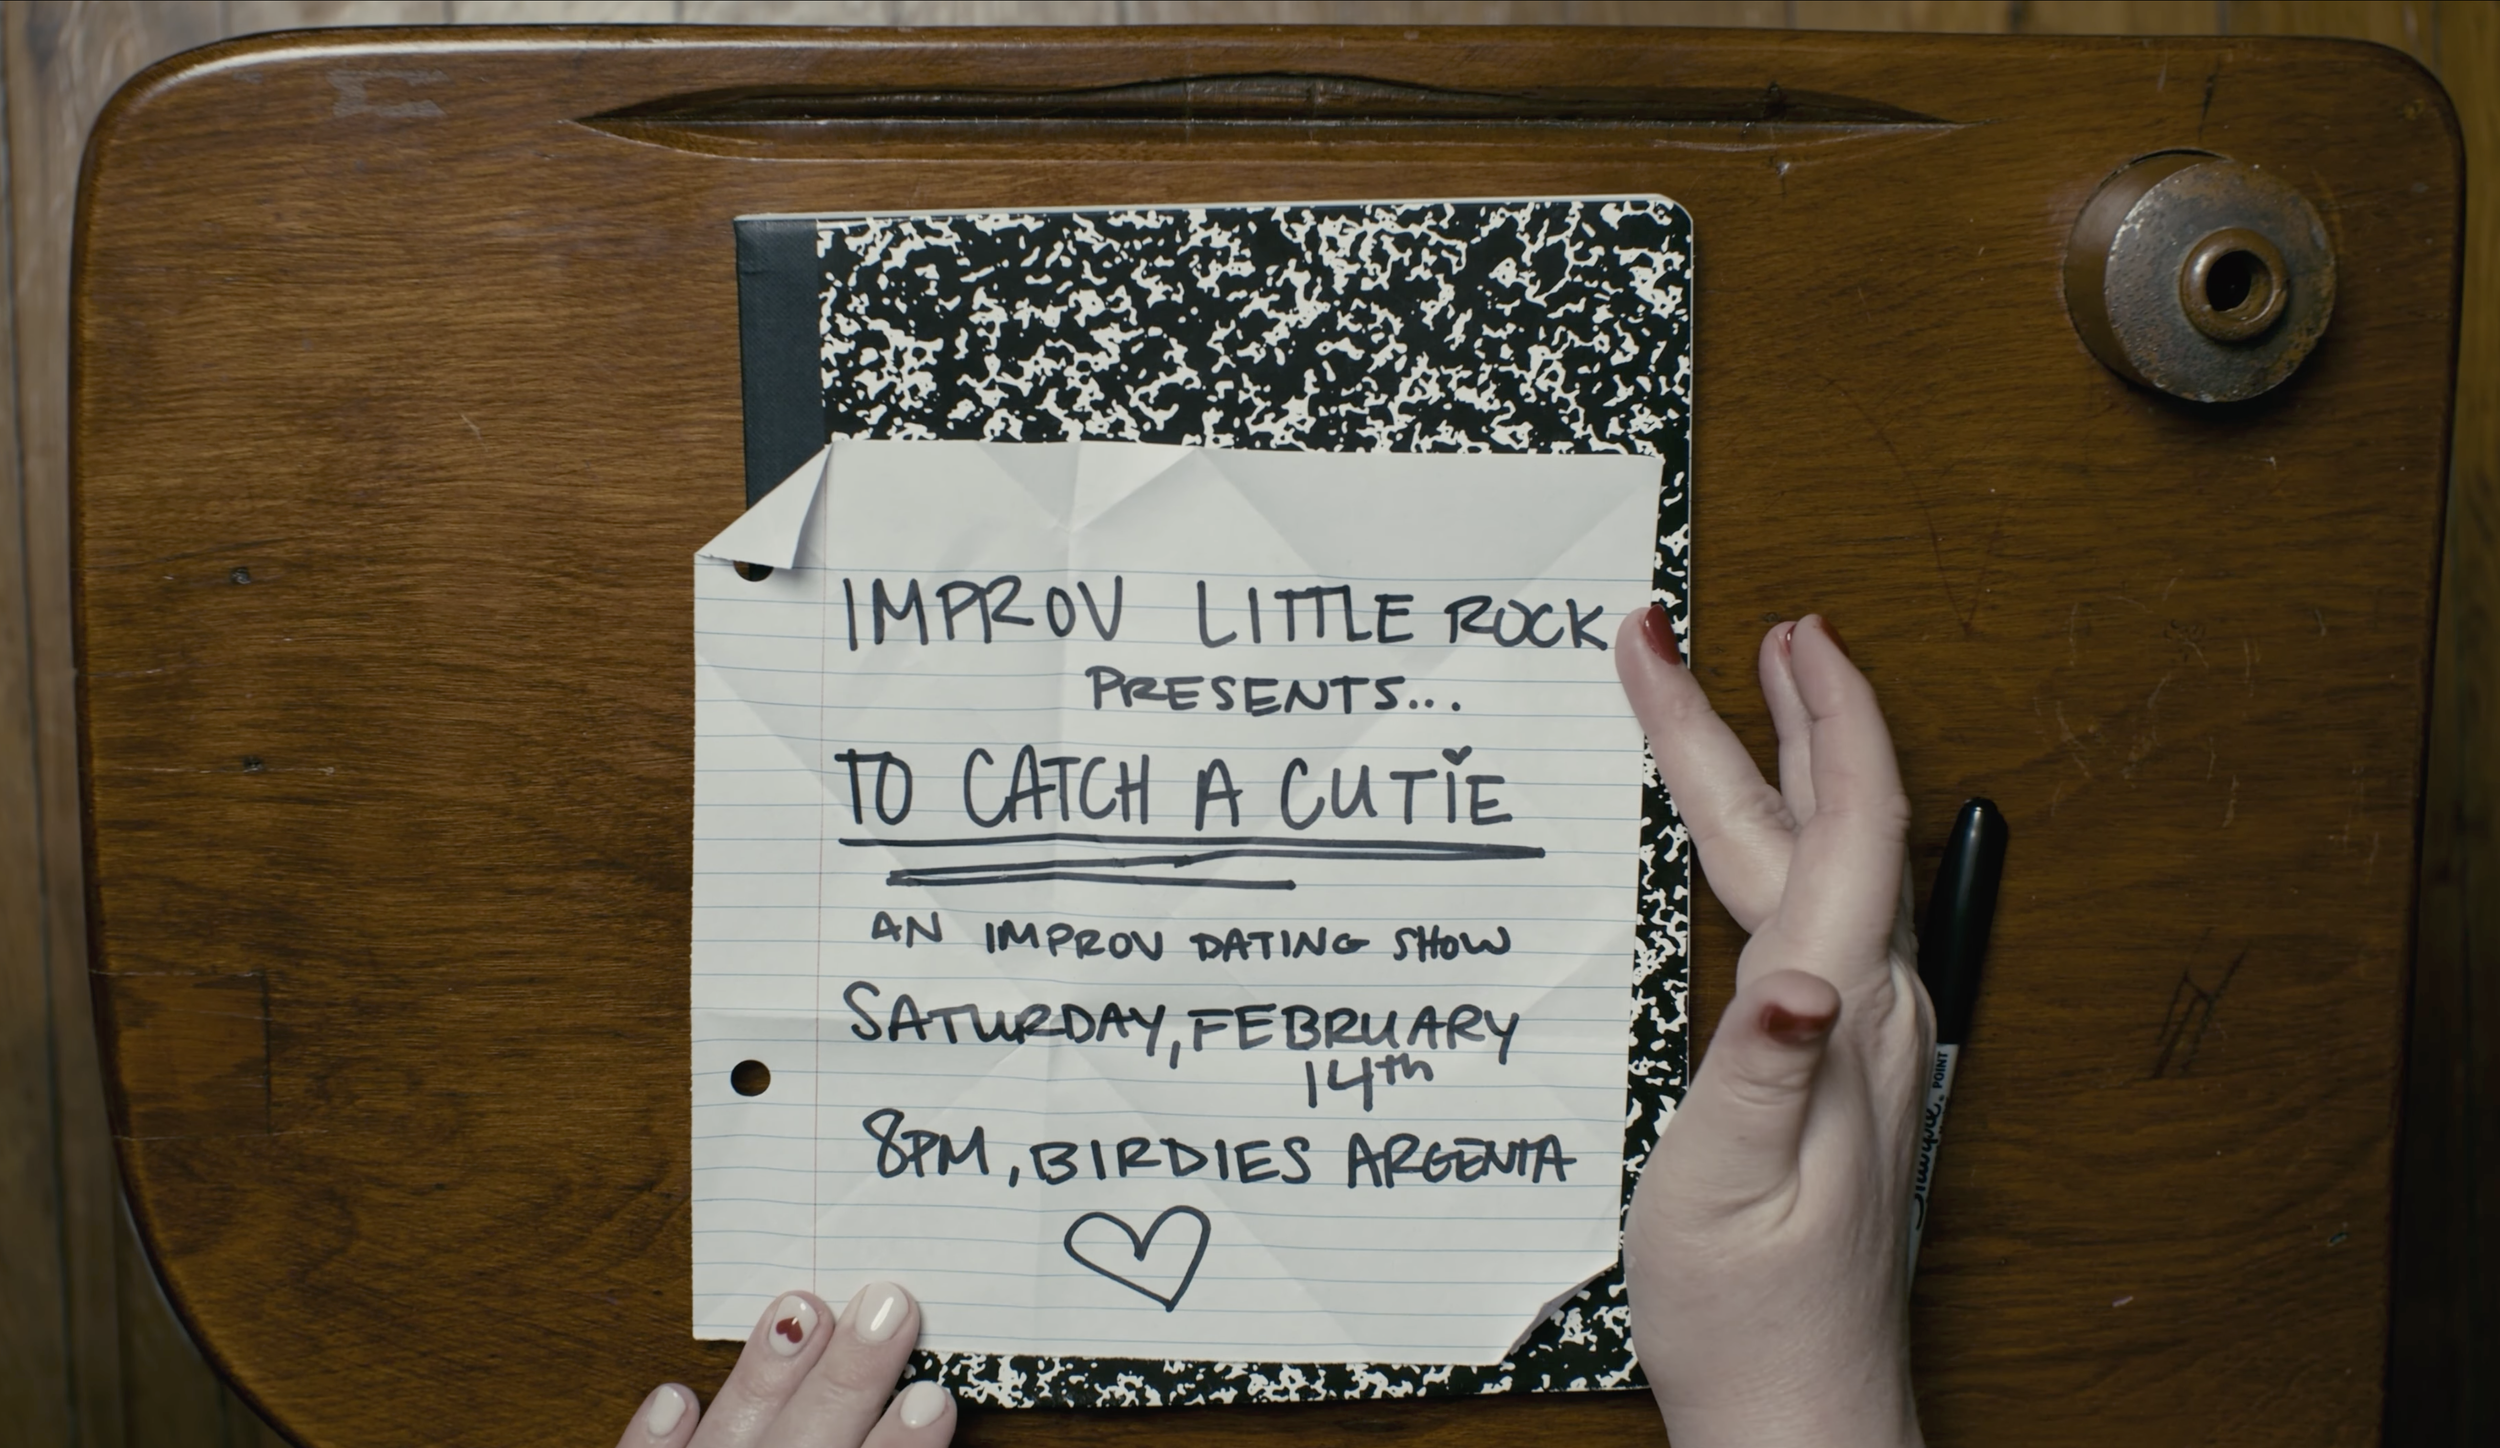 IMPROV LITTLE ROCK
PRESENTS...
TO CATCH A CUTiE
AN IMPROV DATING SHOW
SATURDAY, FEBRUARY
14th
8PM, BIRDIES ARGENTA
Sharpie. POINT